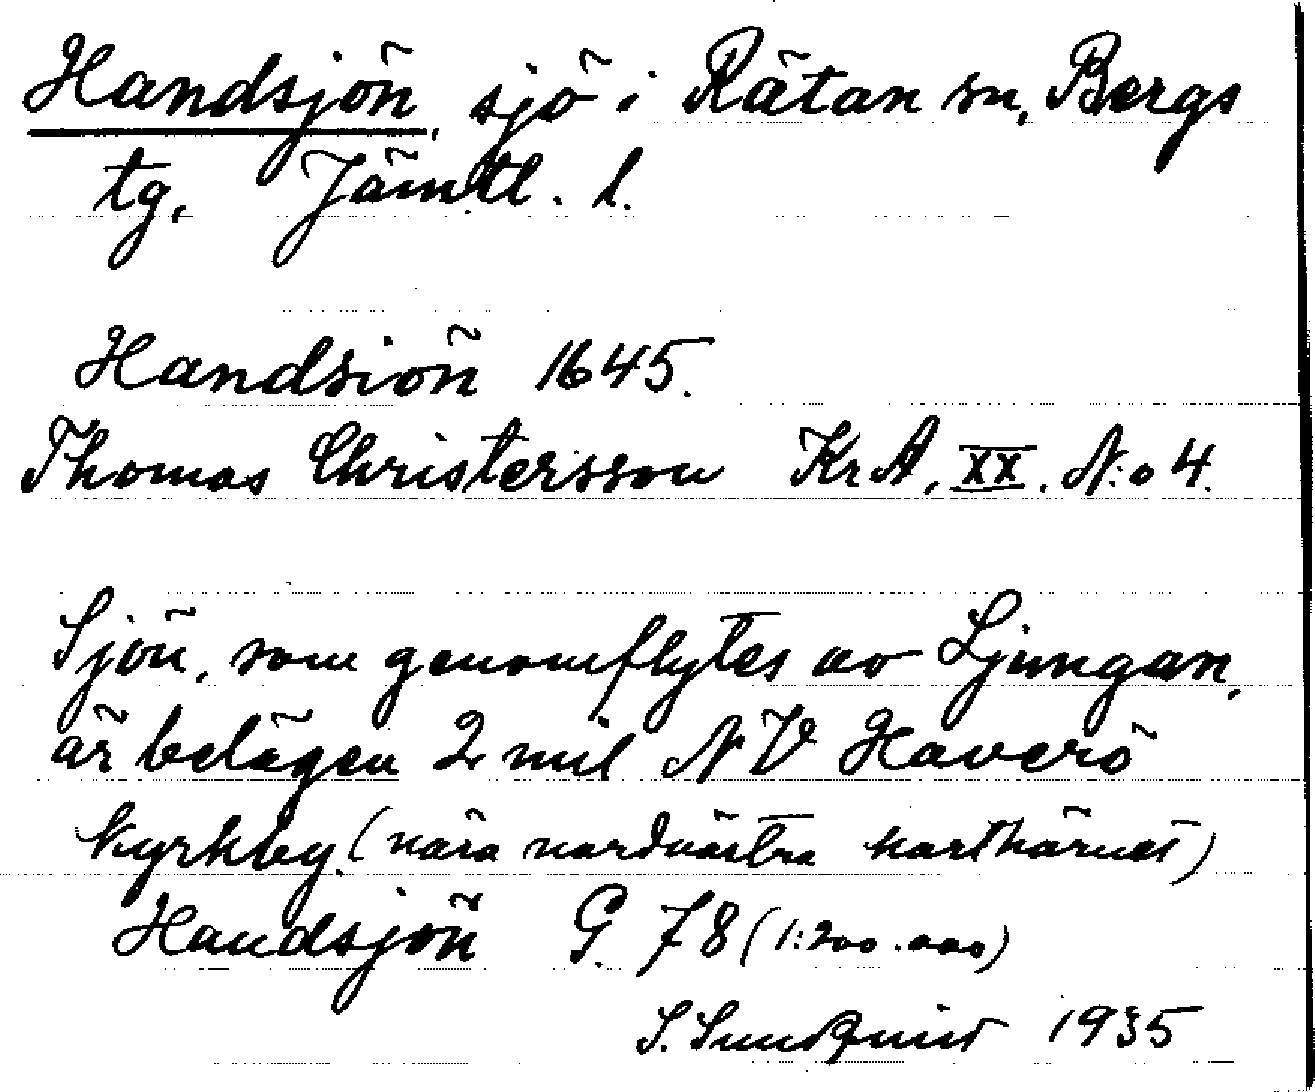 Handsjön, sjö i Rätan sn, Bergs
tg, Jämtl. l.
Handsiön 1645.
Thomas Christersson KrA, XX. N:o 4.
Sjön, som genomflytes av Ljungan,
är belägen 2 mil NV Haverö
kyrkby. (nära nordvästra karthörnet)
Handsjön G. 78 (1:200.000)
S. Sundquist 1935